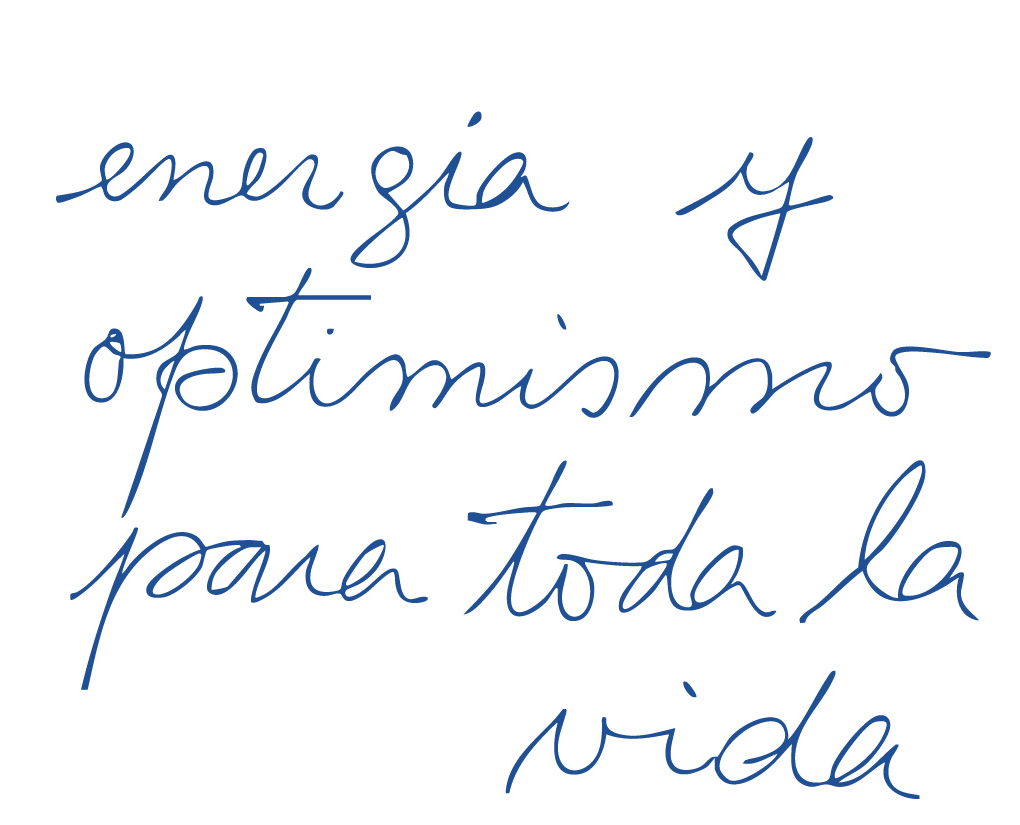 energia y
optimismo
para toda la
vida